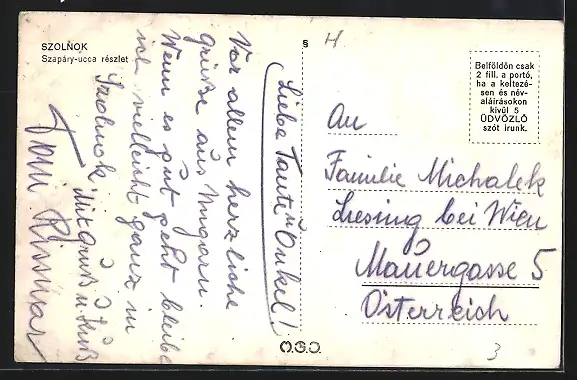 SZOLNOK
Szapáry-ucca részlet
§
H
Belföldön csak
2 fill. a portó,
ha a keltezé-
sen és név-
aláírásokon
kivül 5
ÜDVÖZLŐ
szót irunk.
Liebe Tante u Onkel!
Vor allem herzliche
Grüße aus Ungarn.
Wenn es gut geht bleibe
ich vielleicht ganz in
Szolnok. Mit Gruß u. Kuß
Toni
An
Familie Michalek
Liesing bei Wien
Mauergasse 5
Österreich
O.G.O.
3